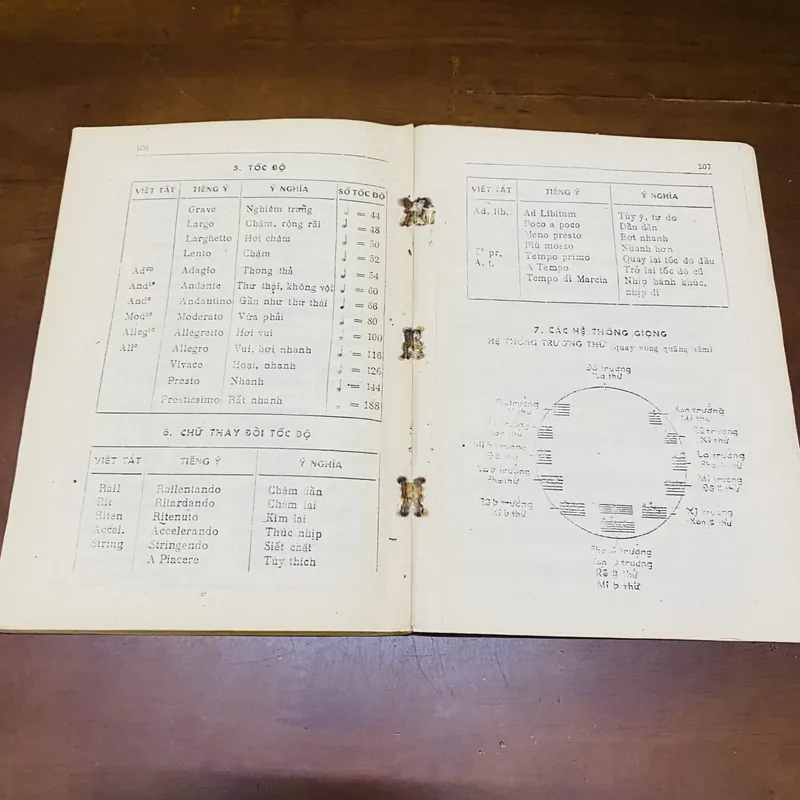 106
5. TỐC ĐỘ
VIẾT TẮT TIẾNG Ý Ý NGHĨA SỐ TỐC ĐỘ
Grave Nghiêm trang ♩ = 44
Largo Chậm, rộng rãi ♩ = 48
Larghetto Hơi chậm ♩ = 50
Lento Chậm ♩ = 52
Adᵍᵒ Adagio Thong thả ♩ = 54
Andᵗᵉ Andante Thư thái, không vội ♩ = 60
Andᵒ Andantino Gần như thư thái ♩ = 66
Modᵗᵒ Moderato Vừa phải ♩ = 80
Allegᵗᵒ Allegretto Hơi vui ♩ = 100
Allᵒ Allegro Vui, hơi nhanh ♩ = 116
Vivace Hoạt, nhanh ♩ = 126
Presto Nhanh ♩ = 144
Prestissimo Rất nhanh = 188
6. CHỮ THAY ĐỔI TỐC ĐỘ
VIẾT TẮT TIẾNG Ý Ý NGHĨA
Rall Rallentando Chậm dần
Rit Ritardando Chậm lại
Riten Ritenuto Kìm lại
Accel. Accelerando Thúc nhịp
String Stringendo Siết chặt
A Piacere Tùy thích
107
VIẾT TẮT TIẾNG Ý Ý NGHĨA
Ad. lib. Ad Libitum Tùy ý, tự do
Poco a poco Dần dần
Meno presto Bớt nhanh
Più mosso Nhanh hơn
Tº pr. Tempo primo Quay lại tốc độ đầu
A. t. A Tempo Trở lại tốc độ cũ
Tempo di Marcia Nhịp hành khúc,
nhịp đi
7. CÁC HỆ THỐNG GIỌNG
HỆ THỐNG TRƯỞNG THỨ (quay vòng quãng năm)
Đô trưởng
La thứ
Pha trưởng
Rê thứ
Xon trưởng
Mi thứ
Xon thứ
Rê trưởng
Xi thứ
Mi b trưởng
Đô thứ
La trưởng
Pha # thứ
La b trưởng
Pha thứ
Mi trưởng
Đô # thứ
Rê b trưởng
Xi b thứ
Xi trưởng
Xon # thứ
Pha # trưởng
Xon b trưởng
Rê # thứ
Mi b thứ